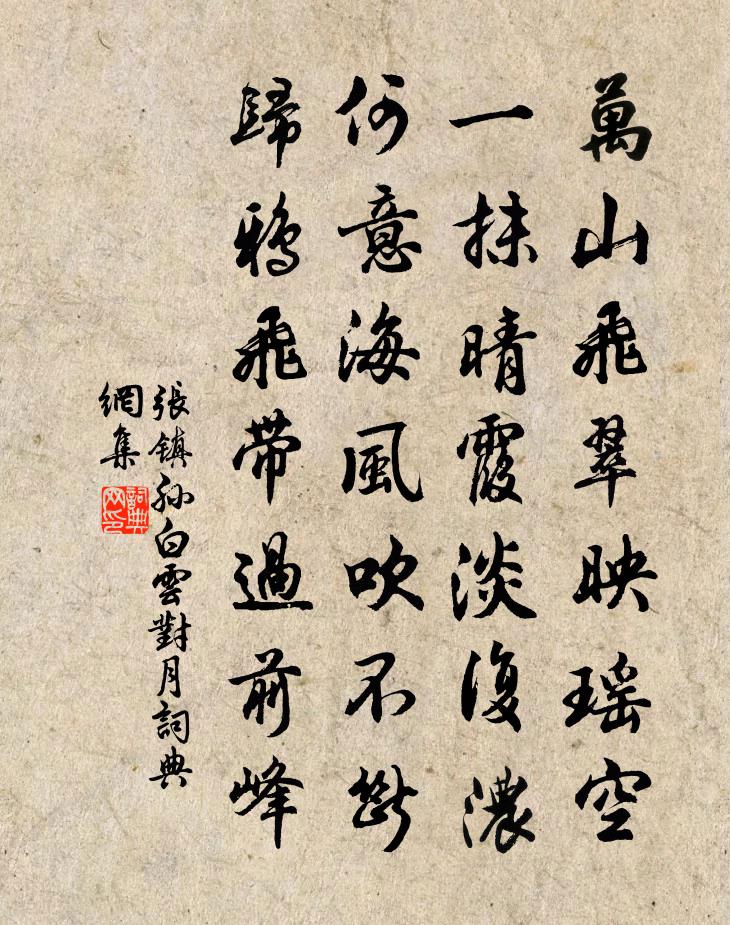 萬山飛翠映瑶空
一抹晴霞淡復濃
何意海風吹不斷
歸鴉飛帶過前峰
張鎮孙白雲對月詞典
網集
詞典
网印